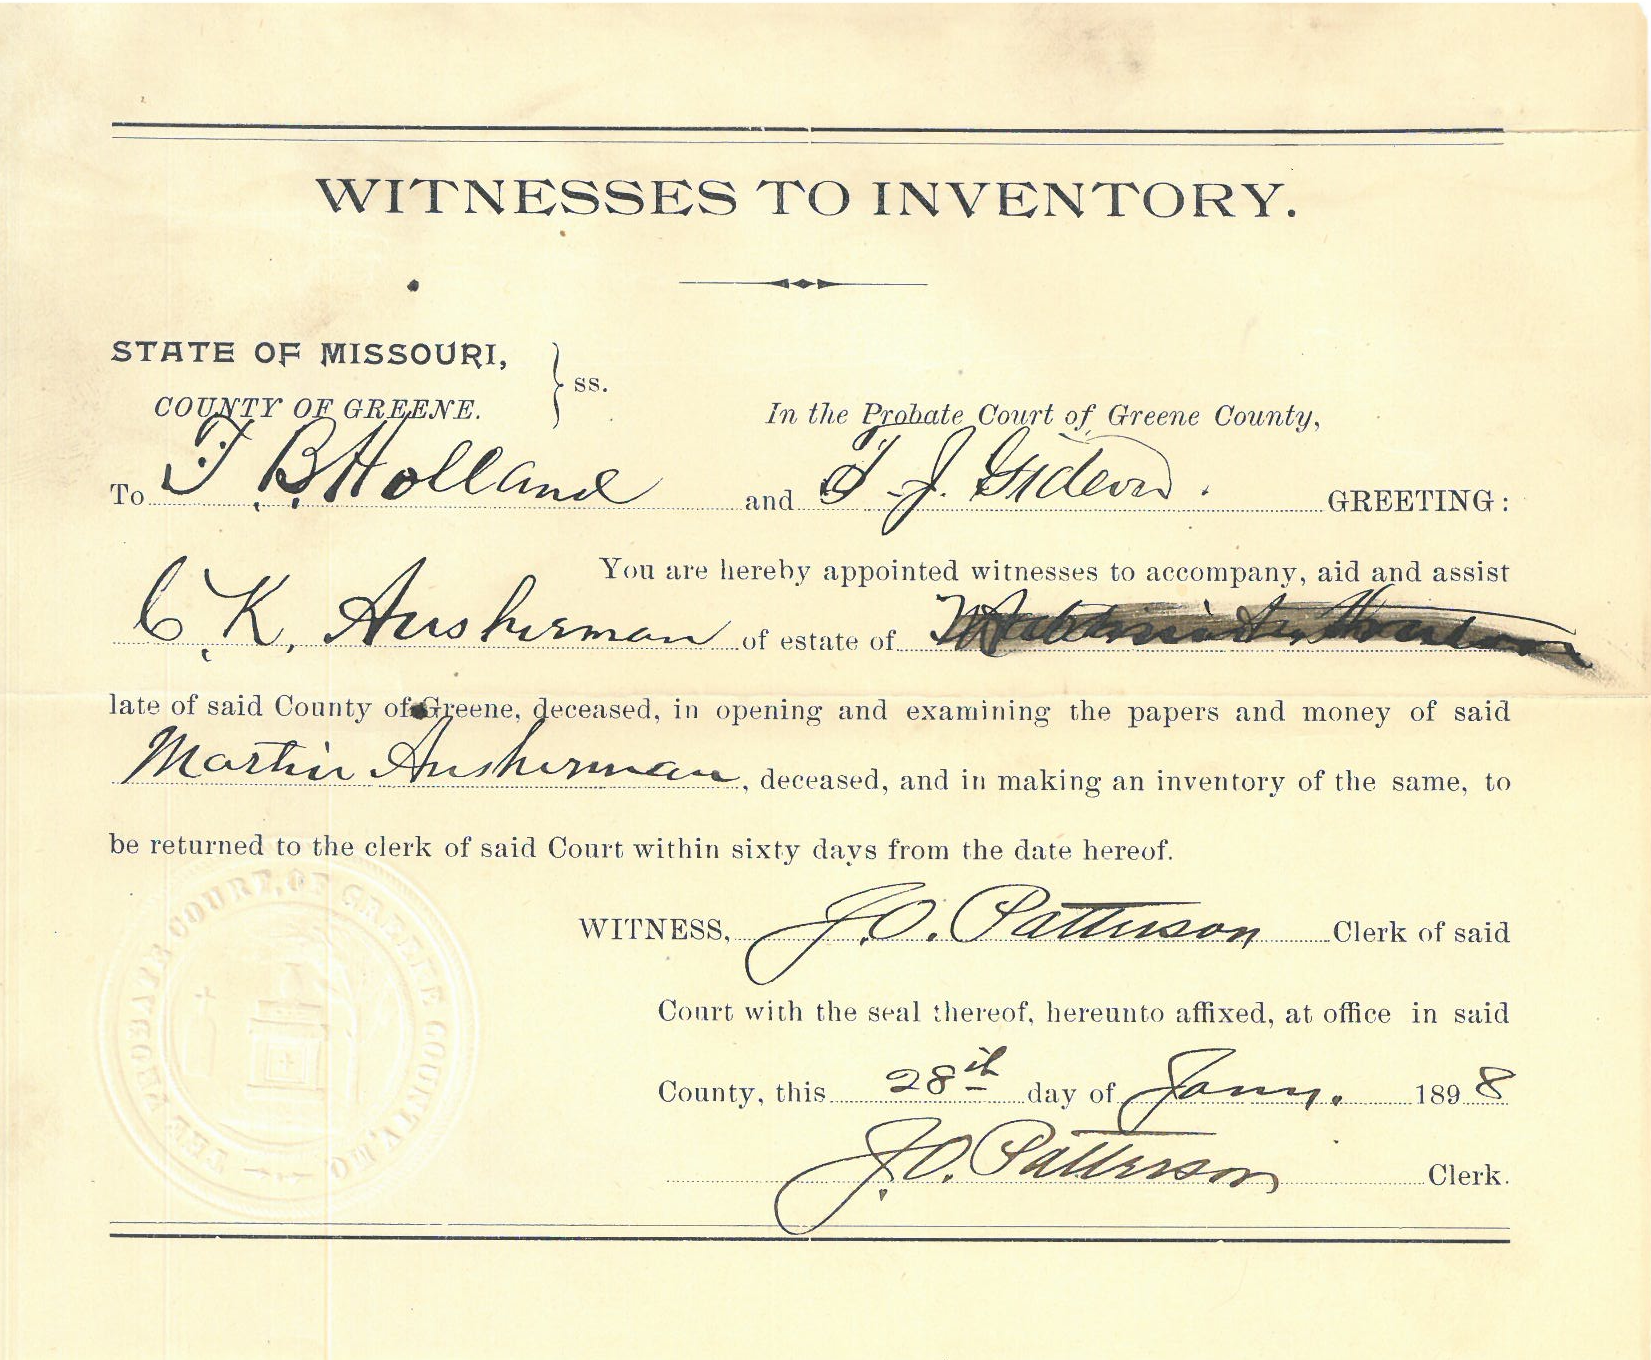 WITNESSES TO INVENTORY.
STATE OF MISSOURI,
COUNTY OF GREENE.
} ss.
In the Probate Court of Greene County,
To T. B. Holland and T. J. Gideon. GREETING:
You are hereby appointed witnesses to accompany, aid and assist
C. K. Ausherman of estate of
late of said County of Greene, deceased, in opening and examining the papers and money of said
Martin Ausherman, deceased, and in making an inventory of the same, to
be returned to the clerk of said Court within sixty days from the date hereof.
WITNESS, J. O. Patterson Clerk of said
Court with the seal thereof, hereunto affixed, at office in said
County, this 28th day of Jany. 1898
J. O. Patterson Clerk.
THE PROBATE COURT, OF GREENE COUNTY, MO.